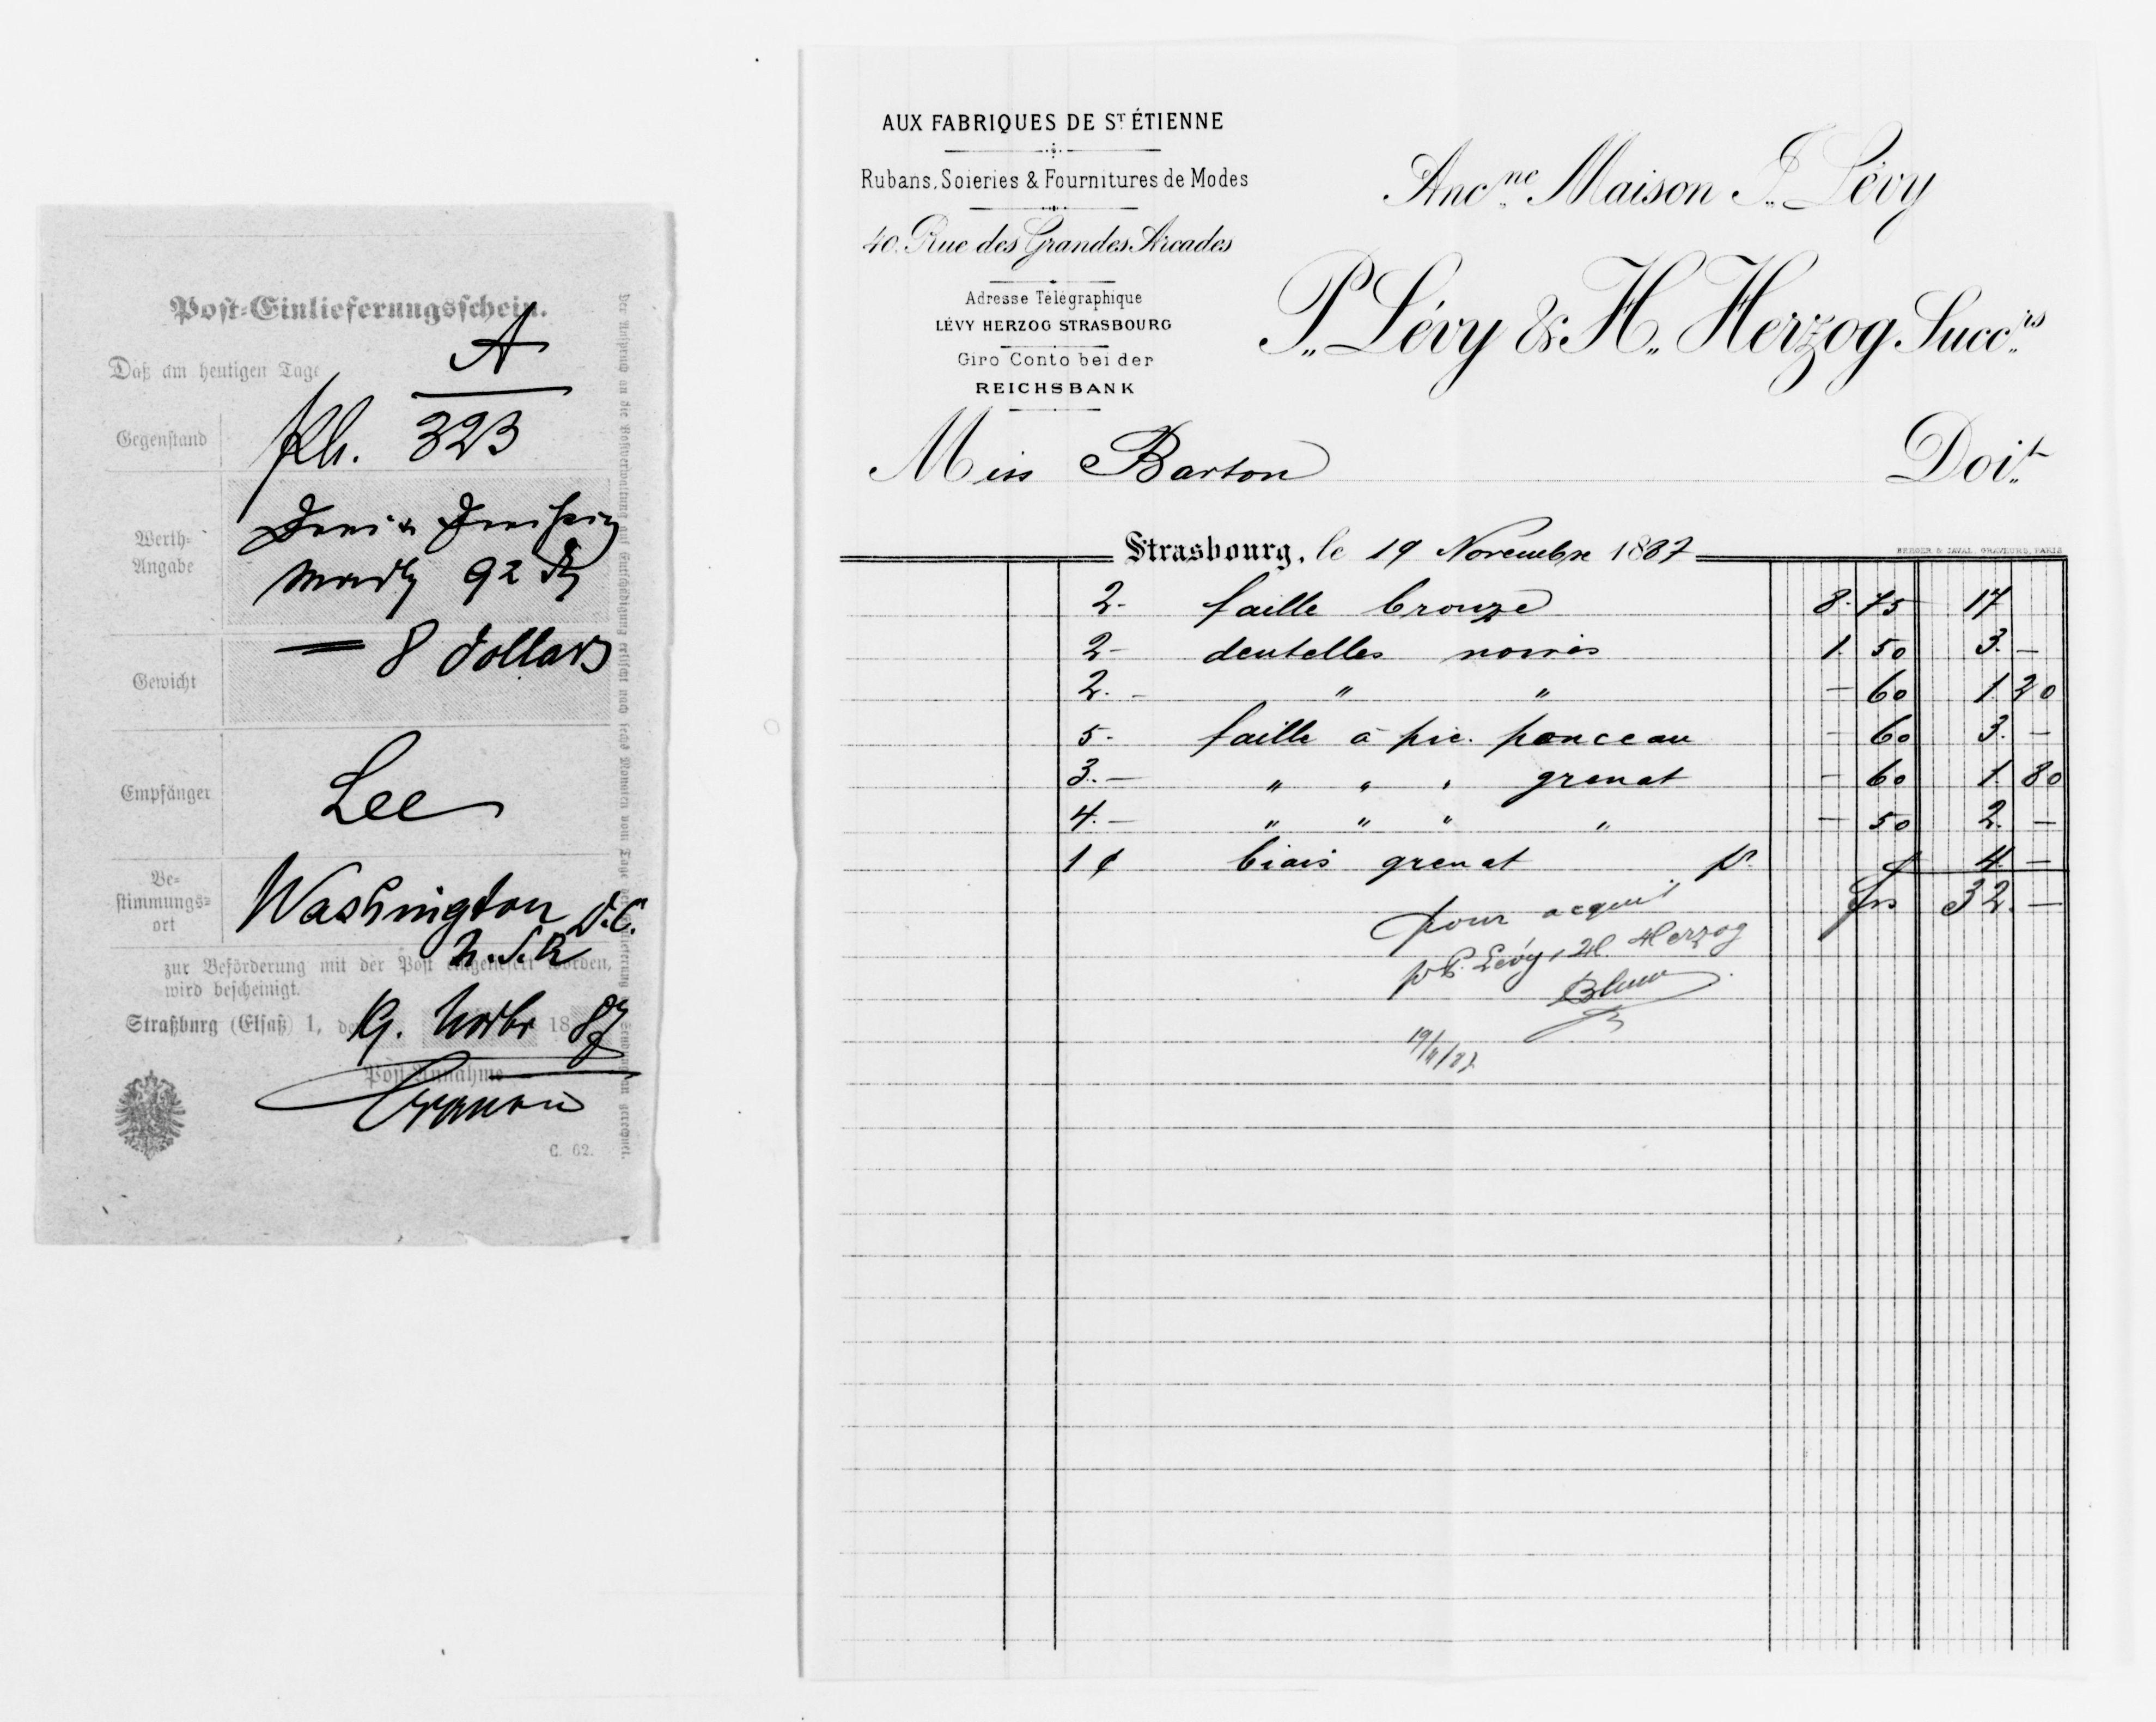 Post-Einlieferungsschein.
A
Daß am heutigen Tage
Gegenstand
323
Werth-
Angabe
92
= 8 dollars
Gewicht
Empfänger
Lee
Be-
stimmungs-
ort
Washington D.C.
zur Beförderung mit der Post eingeliefert worden,
wird bescheinigt.
Straßburg (Elsaß) 1, den 19. Novbr 1887
Post-Annahme
C. 62.
AUX FABRIQUES DE ST ÉTIENNE
Rubans, Soieries & Fournitures de Modes
40. Rue des Grandes Arcades
Adresse Télégraphique
LÉVY HERZOG STRASBOURG
Giro Conto bei der
REICHSBANK
Ancne Maison J. Lévy
P. Lévy & H. Herzog Succrs
Miss Barton Doit
Strasbourg, le 19 Novembre 1887
BERGER & LAVAL, GRAVEURS, PARIS
2- faille bronze 8.75 17
2- dentelles noires 1.50 3. -
2.- " " - 60 1.20
5- faille à pic. ponceau - 60 3. -
3.- " " " grenat - 60 1.80
4.- " " " " - 50 2. -
1 biais grenat 4 -
frs 32. -
pour acquit
P. Lévy, H. Herzog
Blum
19/11/87